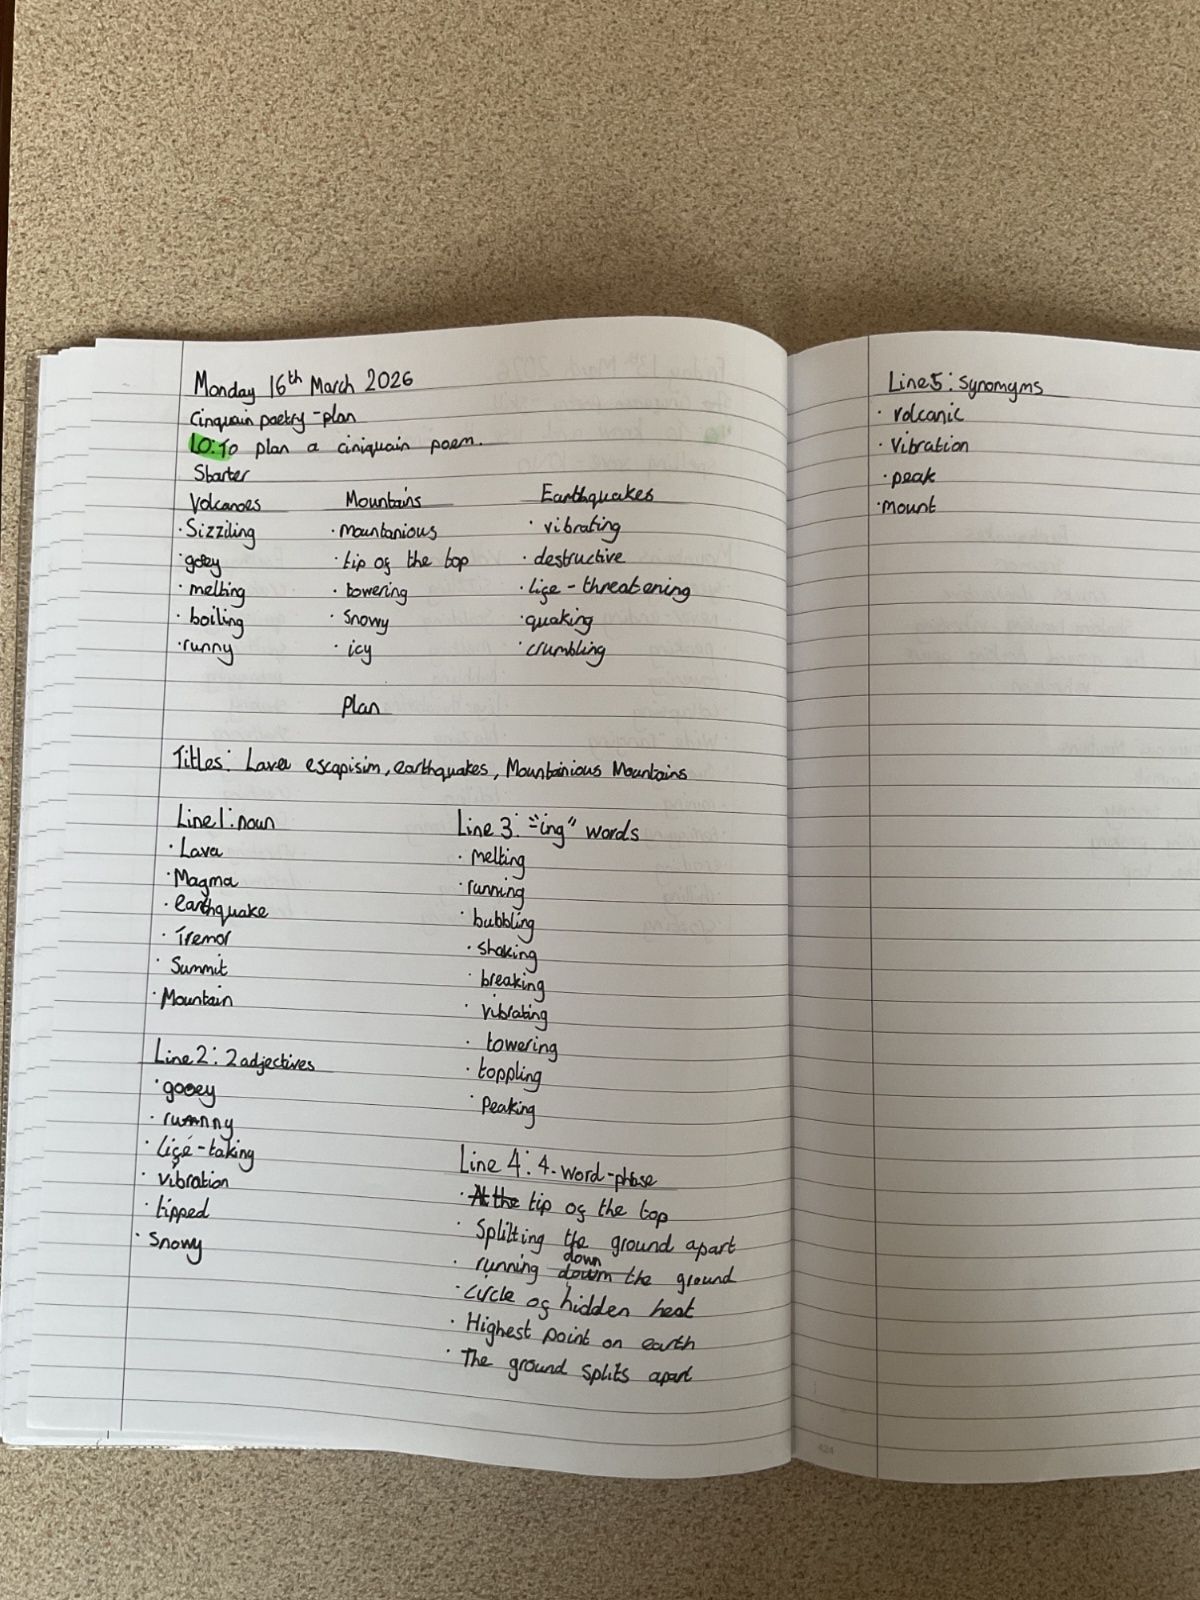 Monday 16th March 2026
Cinquain poetry-plan
LO: To plan a ciniquain poem.
Starter
Volcanoes Mountains Earthquakes
· Sizziling · mountanious · vibrating
· gooey · tip of the top · destructive
· melting · towering · life-threatening
· boiling · Snowy · quaking
· runny · icy · crumbling
Plan
Titles: Lava escapisim, earthquakes, Mountainious Mountains
Line 1: noun
· Lava
· Magma
· earthquake
· Tremor
· Summit
· Mountain
Line 2: 2 adjectives
· gooey
· runny
· life-taking
· vibration
· tipped
· Snowy
Line 3: "ing" words
· melting
· running
· bubbling
· shaking
· breaking
· vibrating
· towering
· toppling
· Peaking
Line 4: 4-word-phase
· At the tip of the top
· Splitting the ground apart
· running down the ground
· circle of hidden heat
· Highest point on earth
· The ground splits apart
Line 5: Synomyms
· volcanic
· Vibration
· peak
· Mount
424